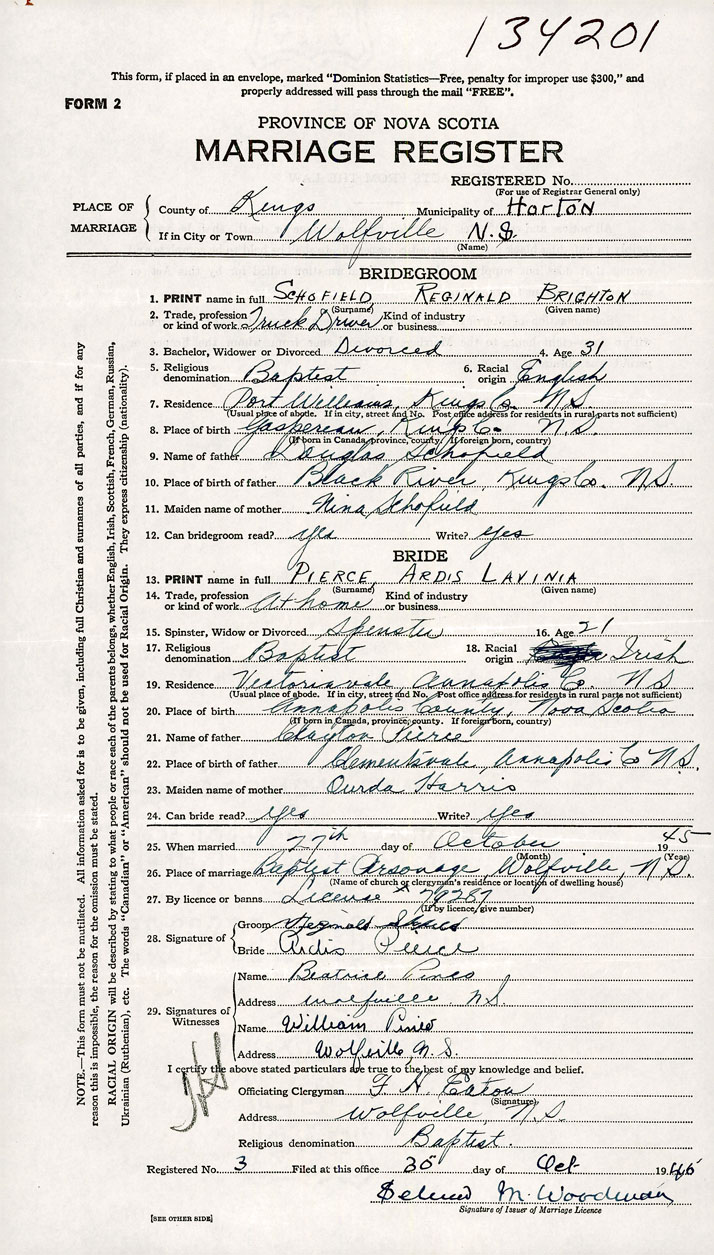 134201
This form, if placed in an envelope, marked "Dominion Statistics—Free, penalty for improper use $300," and
properly addressed will pass through the mail "FREE".
FORM 2
PROVINCE OF NOVA SCOTIA
MARRIAGE REGISTER
REGISTERED No.
(For use of Registrar General only)
PLACE OF MARRIAGE
County of Kings Municipality of Horton
If in City or Town Wolfville N.S.
(Name)
BRIDEGROOM
1. PRINT name in full SCHOFIELD REGINALD BRIGHTON
(Surname) (Given name)
2. Trade, profession or kind of work Truck Driver Kind of industry or business
3. Bachelor, Widower or Divorced Divorced 4. Age 31
5. Religious denomination Baptist 6. Racial origin English
7. Residence Port Williams, Kings Co. N.S.
(Usual place of abode. If in city, street and No. Post office address for residents in rural parts not sufficient)
8. Place of birth Gaspereau, Kings Co. N.S.
(If born in Canada, province, county. If foreign born, country)
9. Name of father Douglas Schofield
10. Place of birth of father Black River, Kings Co. N.S.
11. Maiden name of mother Nina Schofield
12. Can bridegroom read? yes Write? yes
BRIDE
13. PRINT name in full PIERCE, ARDIS LAVINIA
(Surname) (Given name)
14. Trade, profession or kind of work At home Kind of industry or business
15. Spinster, Widow or Divorced Spinster 16. Age 21
17. Religious denomination Baptist 18. Racial origin Irish
19. Residence Victoriavale, Annapolis Co. N.S.
(Usual place of abode. If in city, street and No. Post office address for residents in rural parts not sufficient)
20. Place of birth Annapolis County, Nova Scotia
(If born in Canada, province, county. If foreign born, country)
21. Name of father Clayton Pierce
22. Place of birth of father Clementsvale, Annapolis Co N.S.
23. Maiden name of mother Ourda Harris
24. Can bride read? yes Write? yes
25. When married 27th day of October 1945
(Month) (Year)
26. Place of marriage Baptist Parsonage, Wolfville, N.S.
(Name of church or clergyman's residence or location of dwelling house)
27. By licence or banns License 79287
(If by licence, give number)
28. Signature of
Groom Reginald
Bride Ardis Pierce
29. Signatures of Witnesses
Name Beatrice
Address Wolfville N.S.
Name William
Address Wolfville N.S.
I certify the above stated particulars are true to the best of my knowledge and belief.
Officiating Clergyman F. H. Eaton
(Signature)
Address Wolfville, N.S.
Religious denomination Baptist.
Registered No. 3 Filed at this office 30 day of Oct 1945
M. Woodman
Signature of Issuer of Marriage Licence
[SEE OTHER SIDE]
NOTE.—This form must not be mutilated. All information asked for is to be given, including full Christian and surnames of all parties, and if for any
reason this is impossible, the reason for the omission must be stated.
RACIAL ORIGIN will be described by stating to what people or race each of the parents belongs, whether English, Irish, Scottish, French, German, Russian,
Ukrainian (Ruthenian), etc. The words "Canadian" or "American" should not be used for Racial Origin. They express citizenship (nationality).